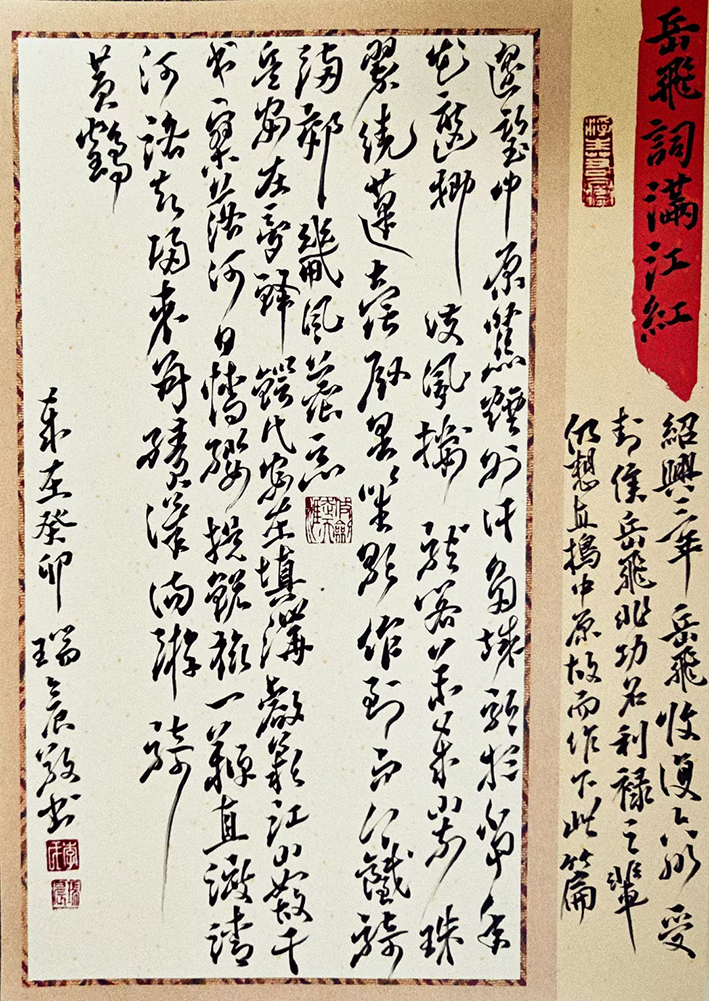 岳飛詞滿江紅
紹興三年岳飛收復六郡受
封侯岳飛非功名利禄之輩
仍想直搗中原故而作下此篇
遙望中原荒煙外許多城郭想當年
花遮柳護鳳樓龍閣萬歲山前珠
翠繞蓬壺殿裏笙歌作到而今鐵騎
滿郊畿風塵惡
兵安在膏鋒鍔民安在填溝壑嘆江山如故千
村寥落何日請纓提銳旅一鞭直渡清
河洛却歸來再續漢陽游騎
黃鶴
歲在癸卯 瑞晨敬書